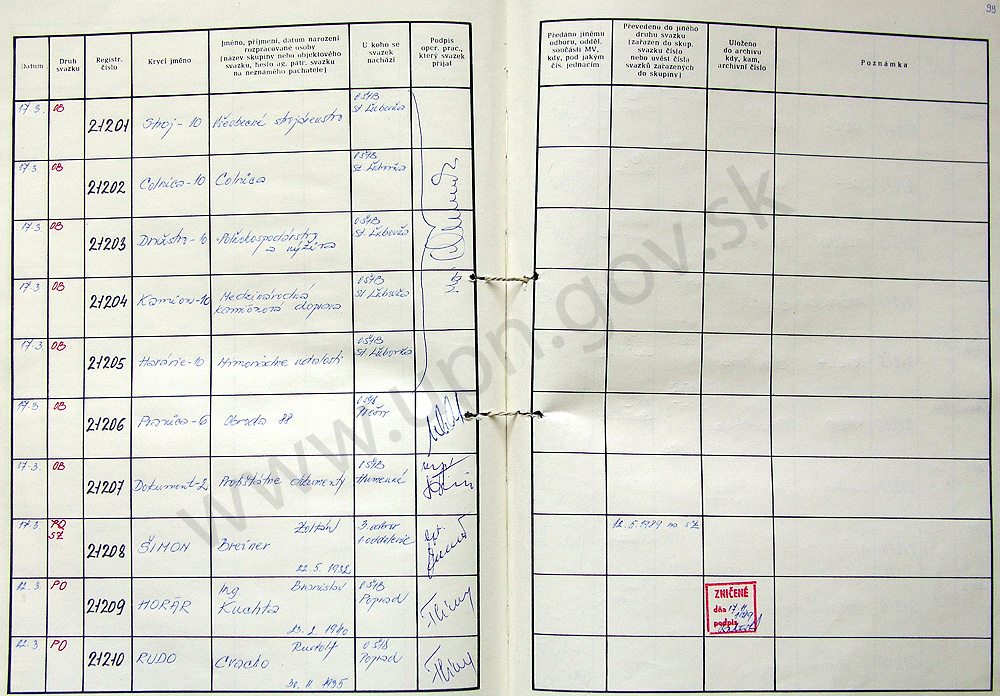 99
Datum
Druh
svazku
Registr.
číslo
Krycí jméno
Jméno, příjmení, datum narození
rozpracované osoby
(název skupiny nebo objektového
svazku, heslo ag. pátr. svazku
na neznámého pachatele)
U koho se
svazek
nachází
Podpis
oper. prac.,
který svazek
přijal
Předáno jinému
odboru, odděl.
součásti MV,
kdy, pod jakým
čís. jednacím
Převedeno do jiného
druhu svazku
(zařazen do skup.
svazku číslo
nebo uvést čísla
svazků zařazených
do skupiny)
Uloženo
do archivu
kdy, kam,
archivní číslo
Poznámka
17.3. OB 21201 Stroj-10 Všeobecné strojárenstvo OŠtB
St. Ľubovňa
17.3. OB 21202 Colnica-10 Colnica OŠtB
St. Ľubovňa
17.3. OB 21203 Družstvo-10 Poľnohospodárstvo
a výživa
OŠtB
St. Ľubovňa
17.3. OB 21204 Kamion-10 Medzinárodná
kamiónová doprava
OŠtB
St. Ľubovňa
17.3. OB 21205 Horárie-10 Mimoriadne udalosti OŠtB
St. Ľubovňa
17.3. OB 21206 Obroda 88 OŠtB
17.3. OB 21207 Dokument-2 dokumenty OŠtB
Humenné
17.3. PO
SZ
21208 ŠIMON Zoltán
Breiner
22.5.1932
3. odbor
1. oddelenie
12.5.1989 na SZ
22.3. PO 21209 HORÁR Ing. Branislav
Kuchta
23.2.1940
OŠtB
Poprad
ZNIČENÉ
dňa 17.
podpis
22.3. PO 21210 RUDO Rudolf
Cvacho
30.11.1935
OŠtB
Poprad
www.upn.gov.sk